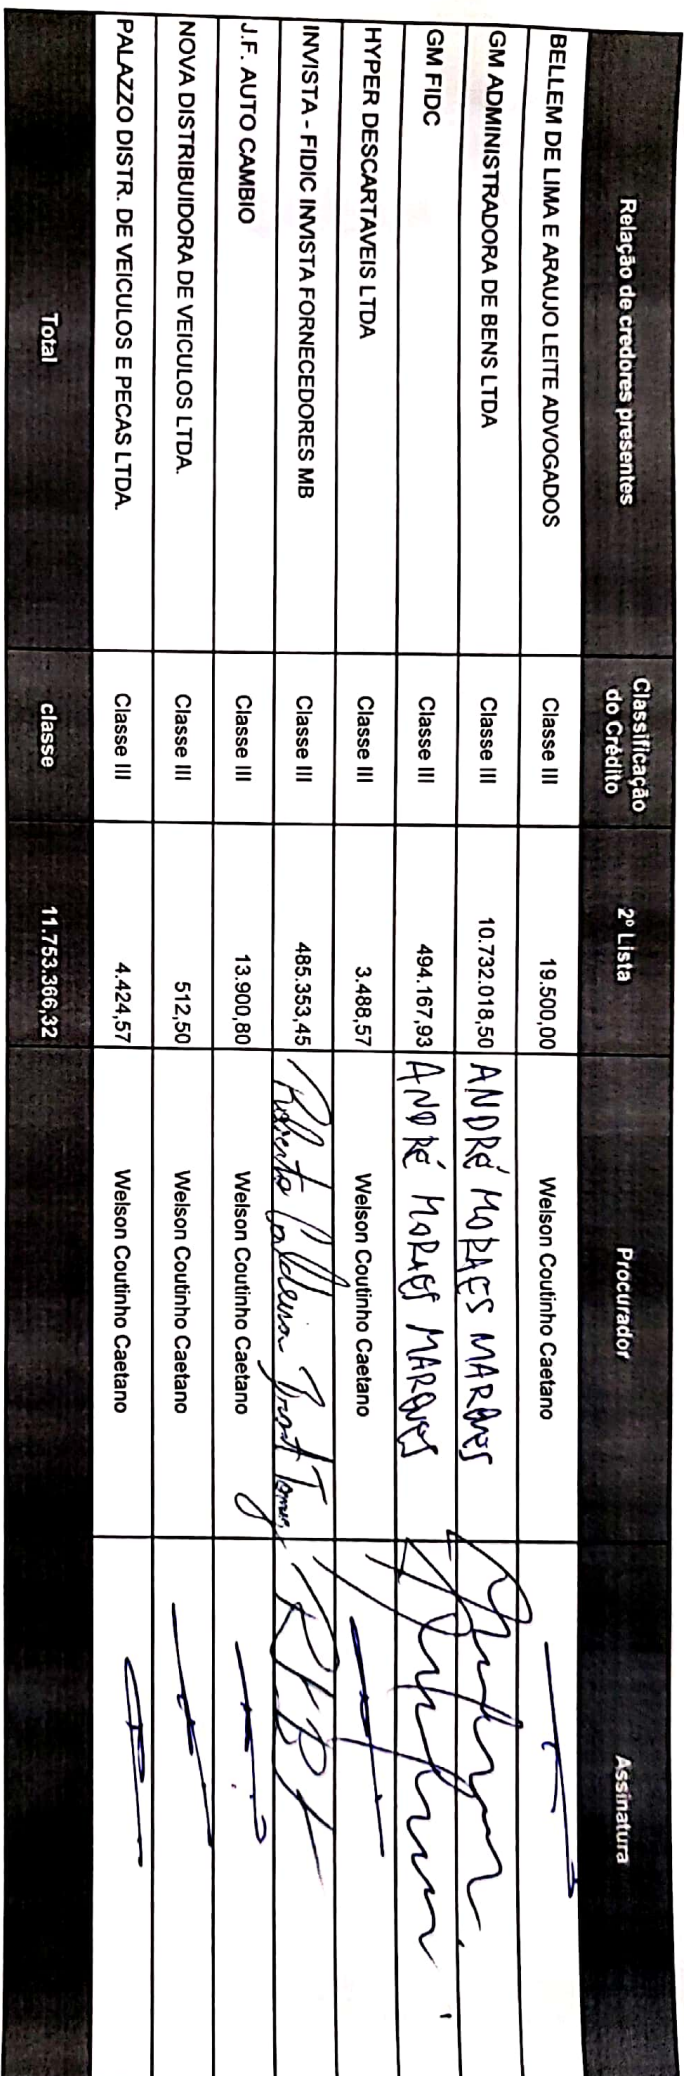 Relação de credores presentes Classificação do Crédito 2º Lista Procurador Assinatura
BELLEM DE LIMA E ARAUJO LEITE ADVOGADOS Classe III 19.500,00 Welson Coutinho Caetano
GM ADMINISTRADORA DE BENS LTDA Classe III 10.732.018,50 ANDRÉ MORAES MARQUES
GM FIDC Classe III 494.167,93 ANDRÉ MORAES MARQUES
HYPER DESCARTAVEIS LTDA Classe III 3.488,57 Welson Coutinho Caetano
INVISTA - FIDIC INVISTA FORNECEDORES MB Classe III 485.353,45 Roberto
J.F. AUTO CAMBIO Classe III 13.900,80 Welson Coutinho Caetano
NOVA DISTRIBUIDORA DE VEICULOS LTDA. Classe III 512,50 Welson Coutinho Caetano
PALAZZO DISTR. DE VEICULOS E PECAS LTDA. Classe III 4.424,57 Welson Coutinho Caetano
Total classe 11.753.366,32